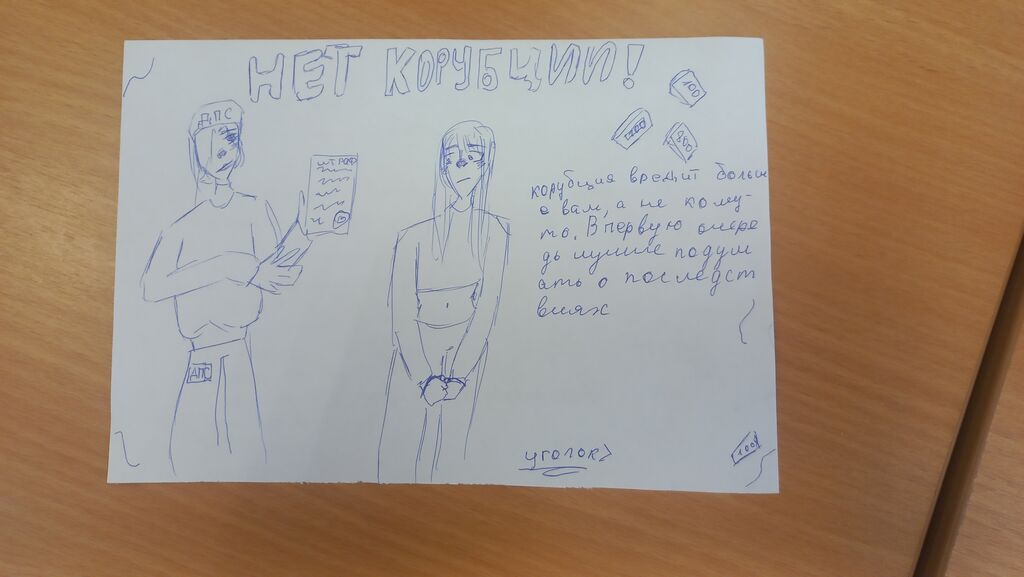 НЕТ КОРУБЦИИ!
ДПС
ШТРАФ
ДПС
100
100
100
корубция вредит больш
е вам, а не кому-
то. В первую очере
дь лучше подум
ать о последст
виях
уголок
100